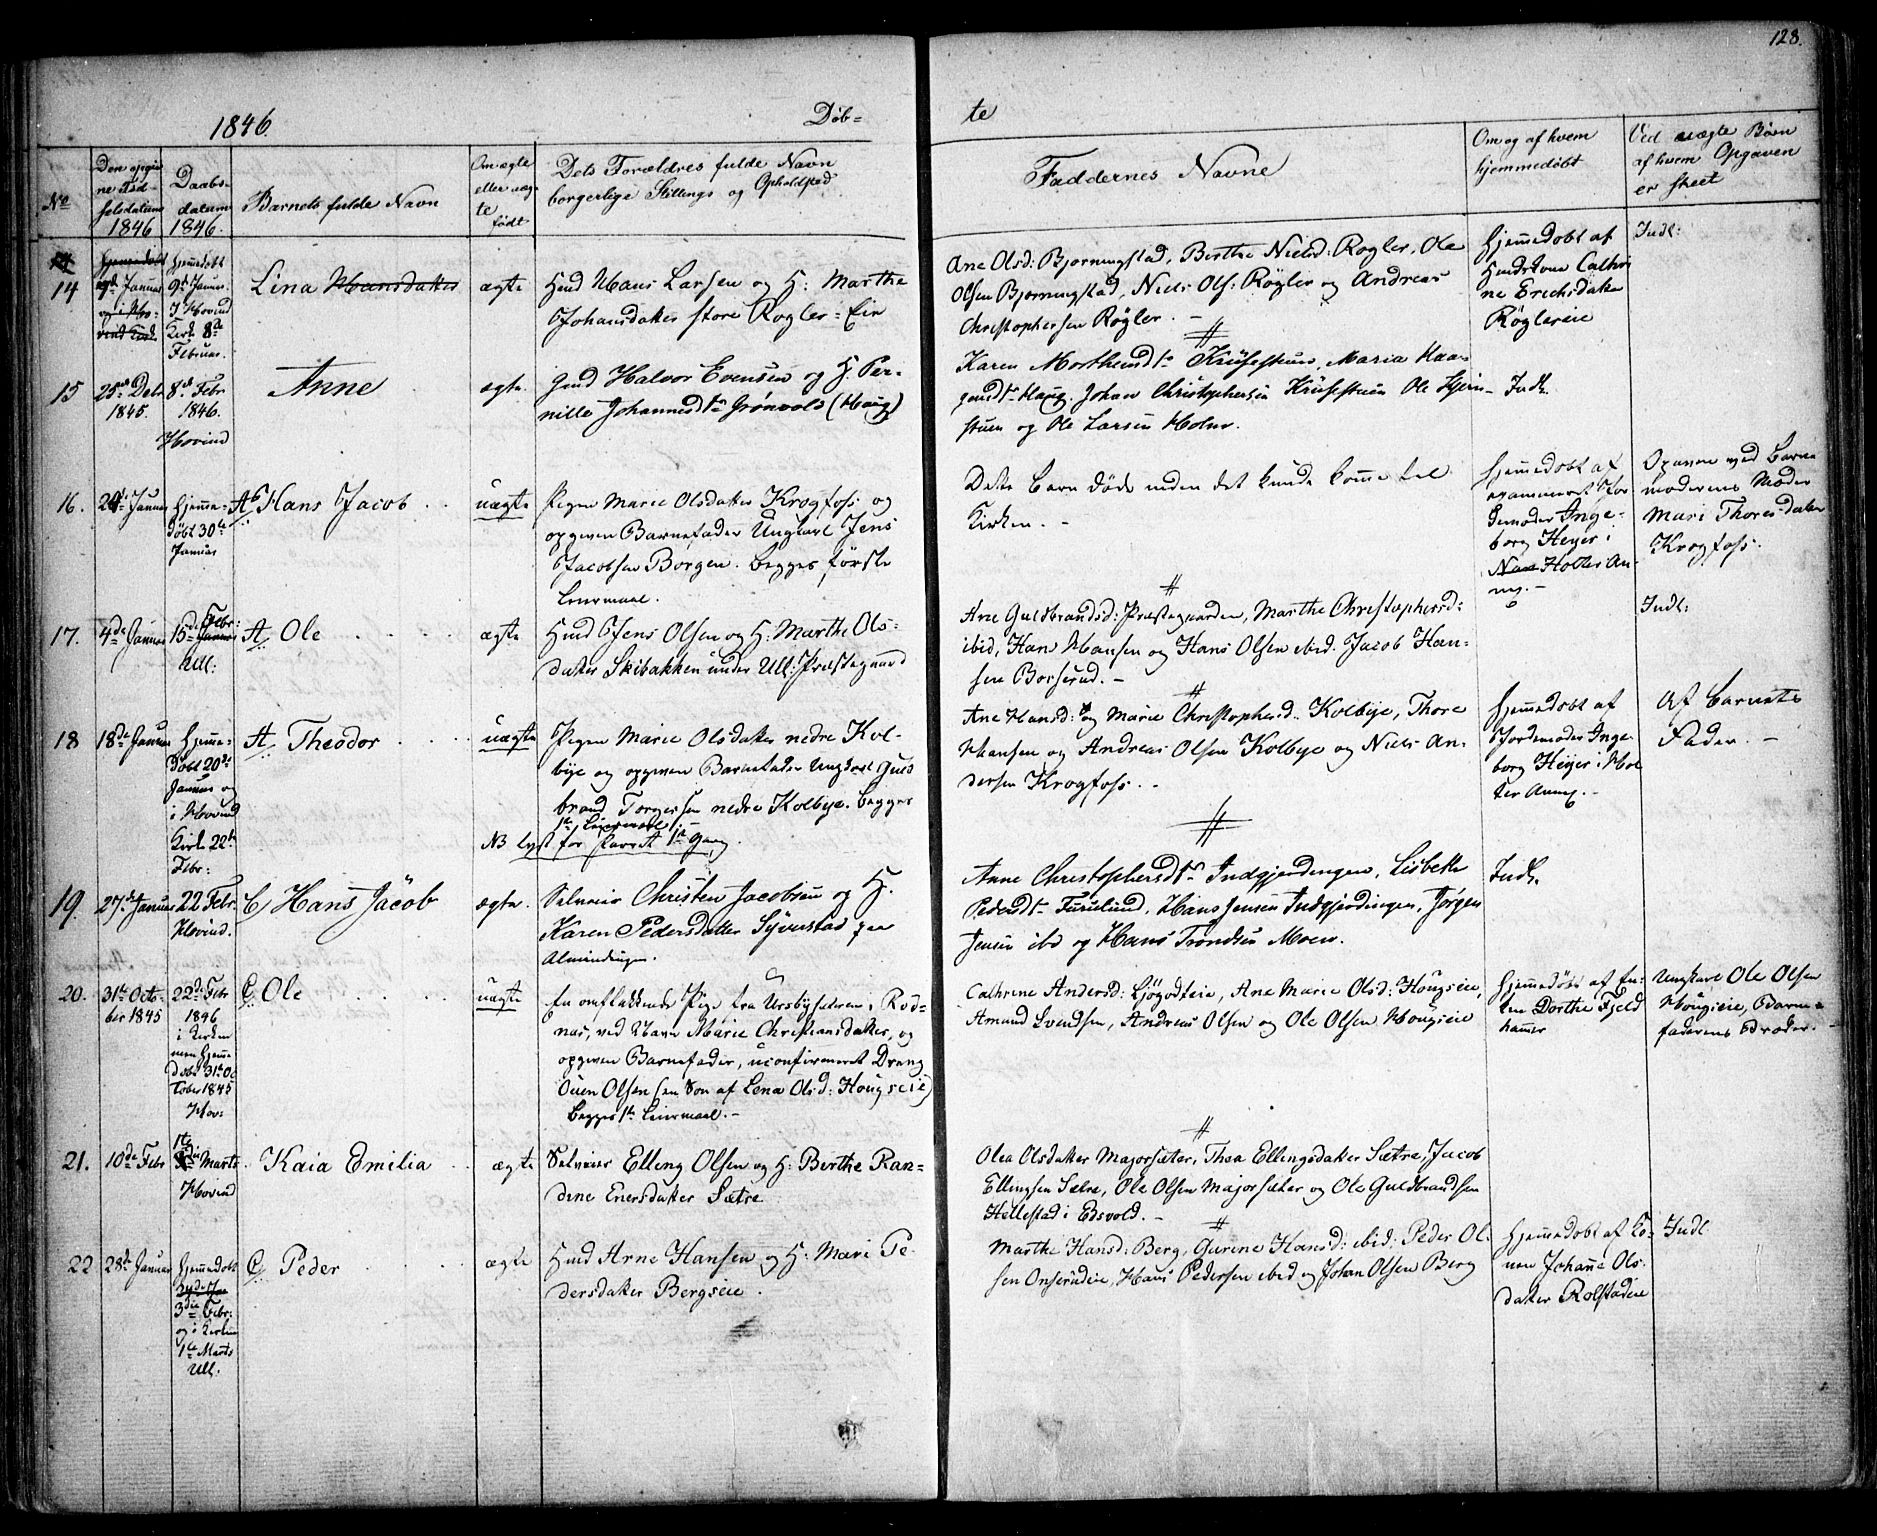 128.
1846.
Døb-
te
No
Den opgiv
ne Fød-
selsdatum
1846
Daabs-
datum
1846.
Barnets fulde Navn
Om ægte
eller uæg-
te
født
Dets Forældres fulde Navn
borgerlige Stilling og Opholdsted
Faddernes Navne
Om og af hvem
hjemmedøbt
Ved uægte Børn
af hvem Opgaven
er skeet
14
Januar
hjemmedøbt
9de Januar
I Hovind
Kirke 8de
Februar.
Lina Hansdatter
ægte
Hmd Hans Larsen og H: Marthe
Johansdatter store Rogler-Eie
Ane Olsd: Bjorningstad, Berthe Nielsd: Rogler, Ole
Olsen Bjorningstad, Niels Ols: Røgler og Andreas
Christophersen Røgler. -
hjemmedøbt af
Huuskone Cathri
ne Erichsdatter
Røglereie
Indl:
15
25de Debr
1845.
8de Febr
1846.
Hovind
Anne
ægte
Hmd Halvor Evensen og H. Per-
nille Johannesdtr Grønvold (Haug)
Karen Morthensdtr Krusestuen, Maria Haa-
gensdtr Haug. Johan Christophersen Krusestuen Ole
stuen og Ole Larsen Holm.
Indl.
16.
Januar
hjemme-
døbt 30te
Januar
Hans Jacob
uægte
Pigen Marie Olsdatter Krogfoss og
opgiven Barnefader Ungkarl Jens
Jacobsen Borgen. begges første
Leiermaal.
Dette Barn døde inden det kunde komme til
Kirken. -
hjemmedøbt af
examineret Jor
demoder Inge-
borg Heyer i
Nan Holter An-
nex. -
Opgaven ved Barne
moderens Moder
Mari Thoresdatter
Krogfoss.
17.
4de Januar
15de Febr:
Januar
Ull:
A. Ole
ægte
Hmd Jens Olsen og H: Marthe Ols-
datter Skibakken under Ull: Præstegaard
Ane Guldbrandsd: Præstegaarden, Marthe Christophersd:
ibid, Han Hansen og Hans Olsen ibid. Jacob Han-
sen Borserud. -
Indl:
18
18de Januar
hjemme-
døbt 20de
Januar og
i Hovind
Kirke 22de
Febr:
A. Theodor
uægte
Pigen Marie Olsdatter nedre Kol-
bye og opgiven Barnefader Ungkarl Gul
brand Torgersen nedre Kolbye. begges
1te Leiermaal. -
NB lyst for 1te Gang.
Ane Hansd: og Marie Christophersd.. Kolbye, Thore
Haansen og Andreas Olsen Kolbye og Niels An-
dersen Krogfoss. -
hjemmedøbt af
Jordemoder Inge-
borg Heyer i Hol
ter Annex. -
Af Barnets
Fader. -
19
27de Januar
22 Febr.
Hovind.
C. Hans Jacob
ægte.
Selveier Christen Jacobsen og H.
Karen Pedersdatter Syverstad paa
Almindingen.
Anne Christophersdtr Indgjerdingen, Lisbeth
Pedersdtr Furulund, Hans Jensen Indgjerdingen, Jørgen
Jensen ibd og Hans Trondsen Moen.
Indl.
20.
31te Octo-
ber 1845
22de Febr
1846
i Kirken
men hjemme
døbt 31te Oc
tober 1845
Hov:
C. Ole
uægte
En omflakkende Pige fra
næs, ved Navn Marie Christiansdatter, og
opgiven Barnefader, uconfirmeret Dreng
Ouen Olsen (en Søn af Lena Olsd: Hougseie)
begges 1te Leiermaal. -
Cathrine Andersd: Ljøgodteie, Ane Marie Olsd: Hougseie,
Amund Svendsen, Andreas Olsen og Ole Olsen Hougseie
hjemmedøbt af En-
ken Dorthe Fjeld
hammer
Ungkarl Ole Olsen
Hougseie, Barne-
faderens Broder. -
21.
10de Febr
1te
Marts
Hovind
Kaia Emilia
ægte
Selveier Elling Olsen og H: Berthe Ran-
dine Enersdatter Sætre
Olea Olsdatter Majorsæter, Thea Ellingsdatter Sætre, Jacob
Ellingsen Sætre, Ole Olsen Majorsæter og Ole Guldbrandsen
Hellestad i Edsvold. -
22
28de Januar
hjemmedøbt
3die Febr:
og i Kirken
1te Marts
Ull.
C. Peder
ægte
Hmd Arne Hansen og H. Mari Pe-
dersdatter Bergseie.
Marthe Hansd: Berg, Gurine Hansd: ibid; Peder Ol-
sen Onserudeie, Hans Pedersen ibid og Johan Olsen Berg
hjemmedøbt af Ko-
nen Johanne Ols-
datter Rolstadeie
Indl